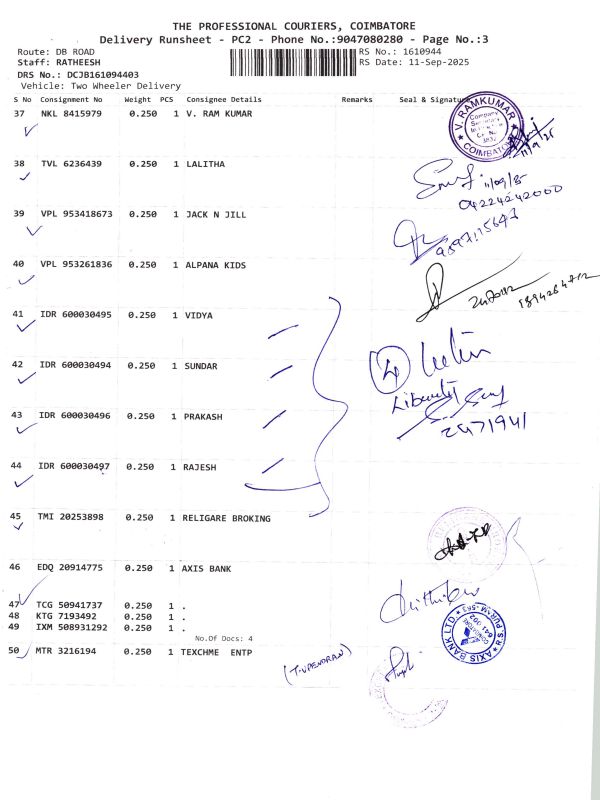 THE PROFESSIONAL COURIERS, COIMBATORE
Delivery Runsheet - PC2 - Phone No.:9047080280 - Page No.:3
Route: DB ROAD
RS No.: 1610944
Staff: RATHEESH
RS Date: 11-Sep-2025
DRS No.: DCJB161094403
Vehicle: Two Wheeler Delivery
S No Consignment No Weight PCS Consignee Details Remarks Seal & Signature
37 NKL 8415979 0.250 1 V. RAM KUMAR
V. RAMKUMAR
Company
Secretary
COIMBATORE
11/9/25
38 TVL 6236439 0.250 1 LALITHA
11/09/25
04224242000
39 VPL 953418673 0.250 1 JACK N JILL
40 VPL 953261836 0.250 1 ALPANA KIDS
41 IDR 600030495 1 VIDYA
0.250
42 IDR 600030494 0.250 1 SUNDAR
4
43 IDR 600030496 0.250 1 PRAKASH
2471941
44 IDR 600030497 0.250 1 RAJESH
45 TMI 20253898 0.250 1 RELIGARE BROKING
46 EDQ 20914775 0.250 1 AXIS BANK
47 TCG 50941737 0.250 1 .
48 KTG 7193492 0.250 1 .
49 IXM 508931292 0.250 1 .
No.Of Docs: 4
AXIS BANK LTD. R.S. PURAM
COIMBATORE
641 002
50 MTR 3216194 0.250 1 TEXCHME ENTP
(T. UPENDRAN)